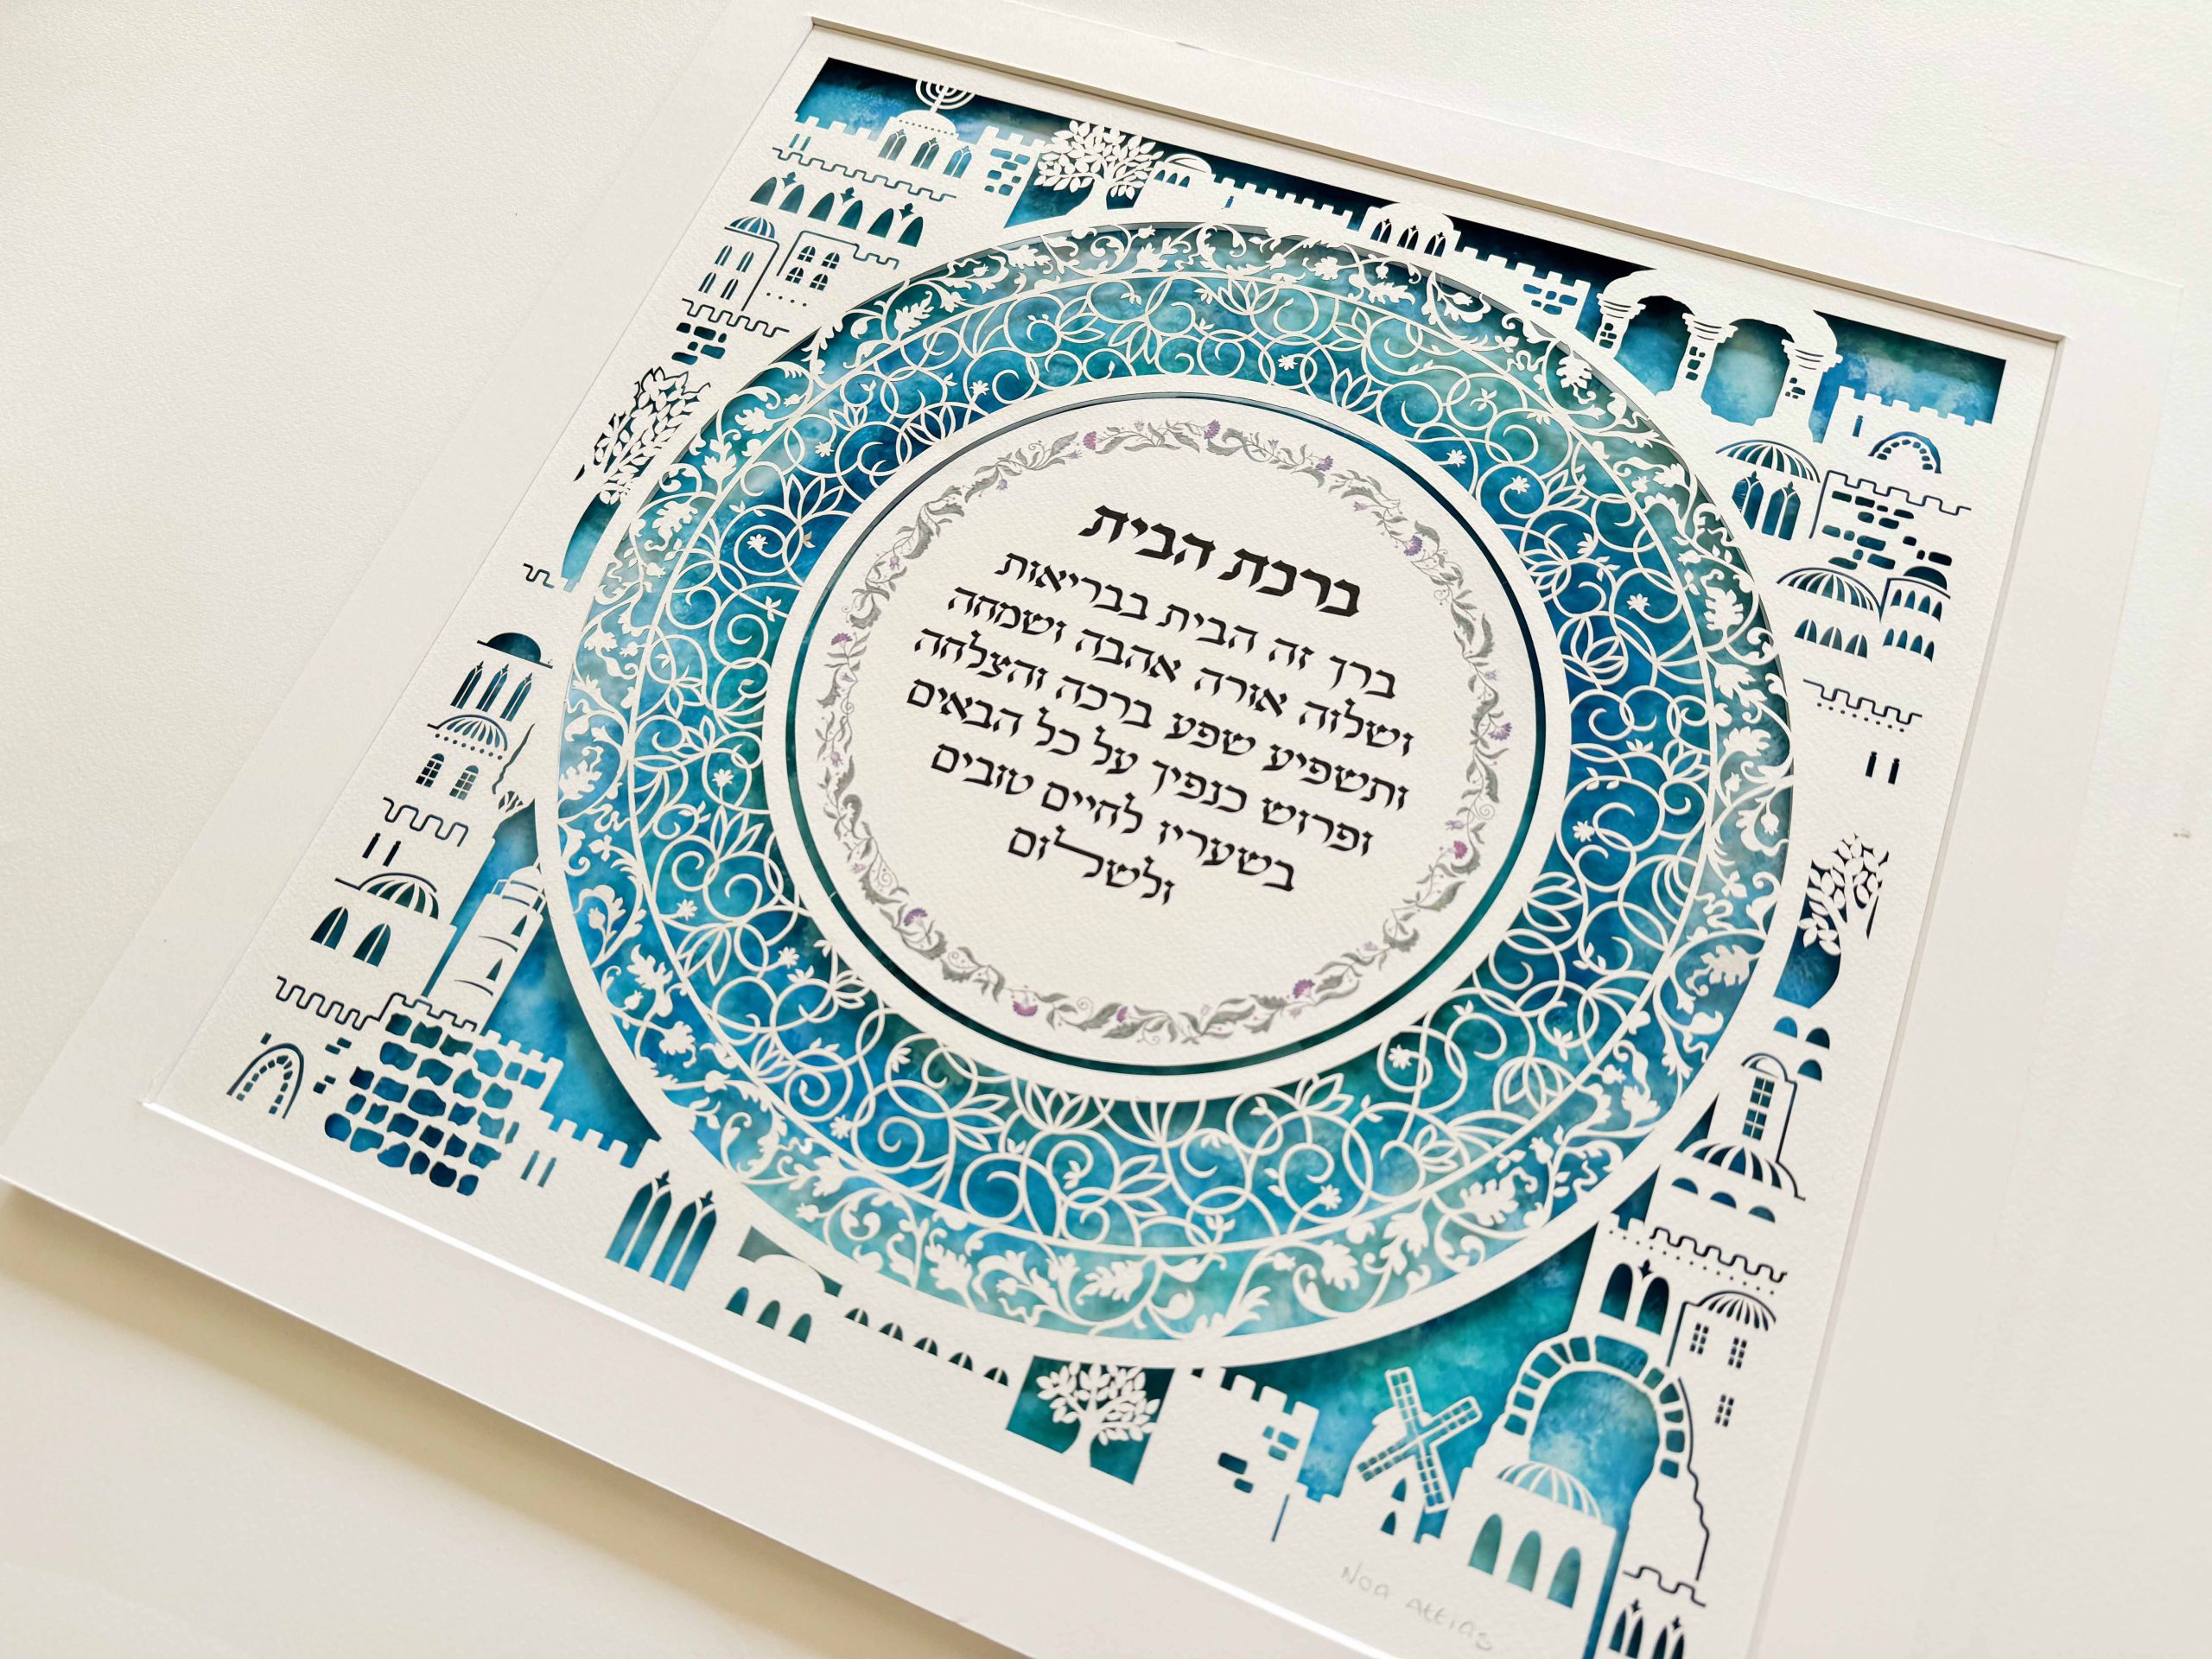 ברכת הבית
ברך זה הבית בבריאות
ושלוה אורה אהבה ושמחה
ותשפיע שפע ברכה והצלחה
ופרוש כנפיך על כל הבאים
בשעריו לחיים טובים
ולשלום
Noa Attias